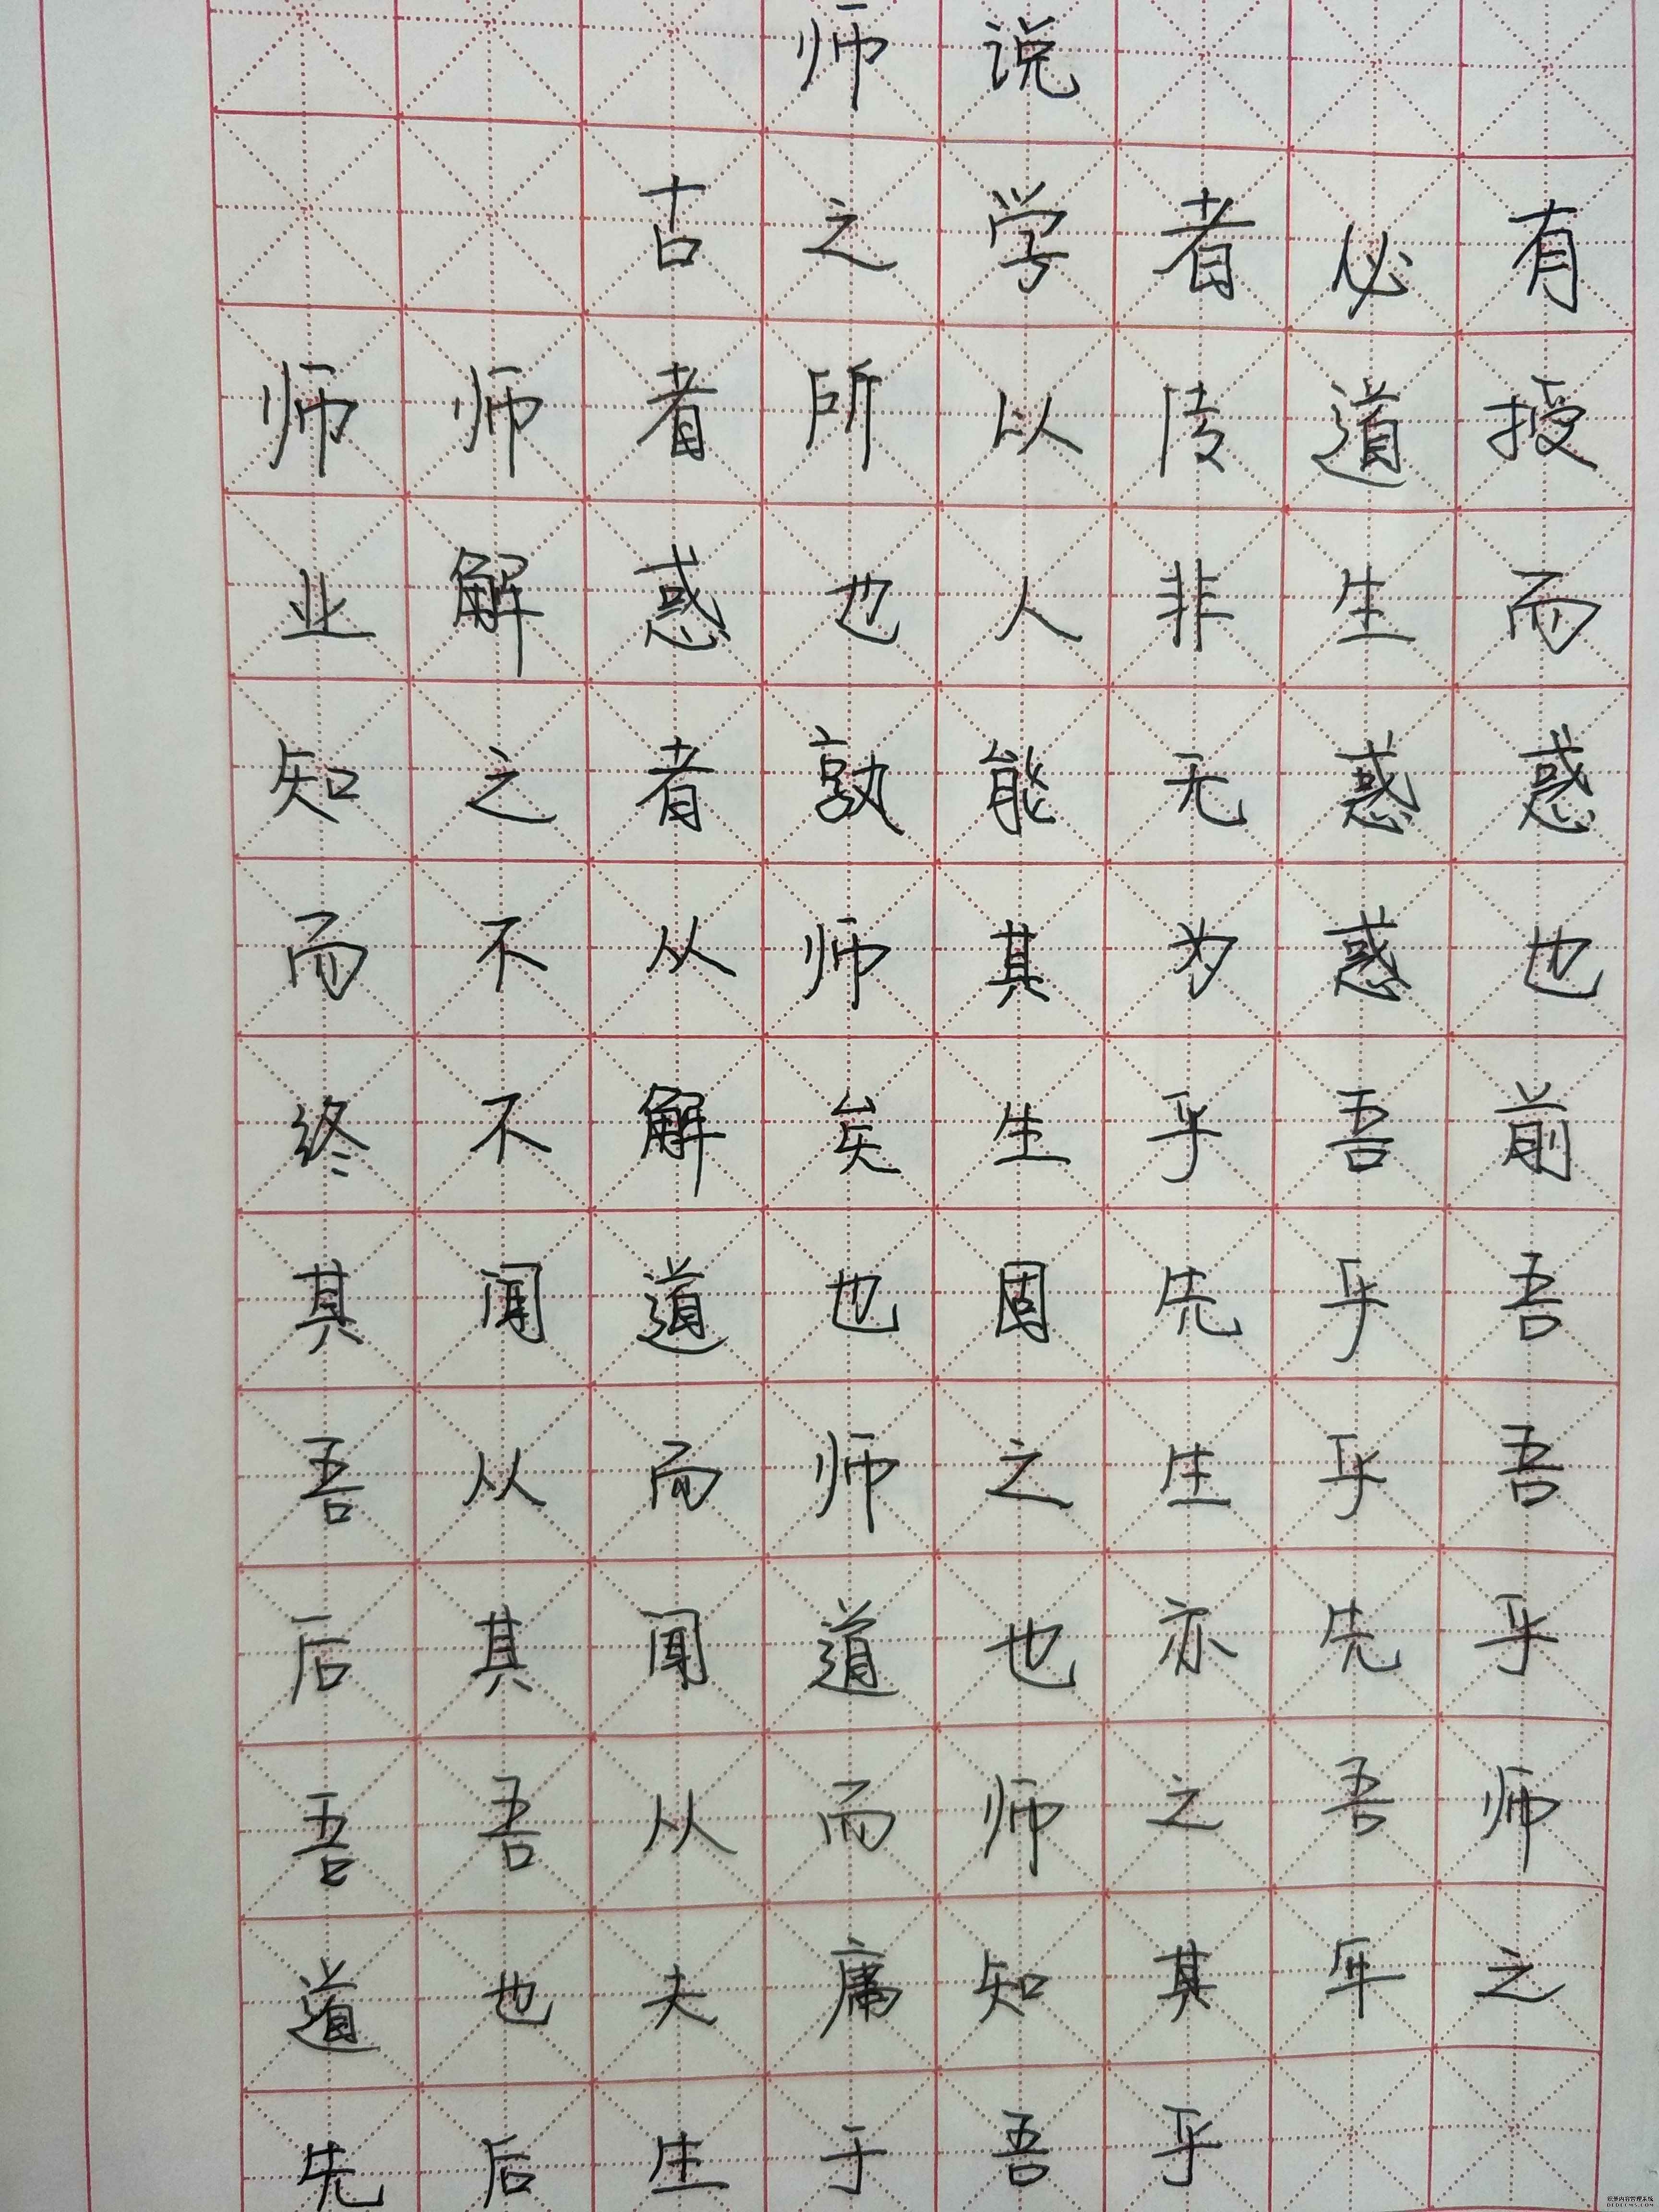 师说
古之学者必有
师师者所以传道授
业解惑也人非生而
知之者孰能无惑惑
而不从师其为惑也
终不解矣生乎吾前
其闻道也固先乎吾
吾从而师之生乎吾
后其闻道也亦先乎
吾吾从而师之吾师
道也夫庸知其年之
先后生于吾乎